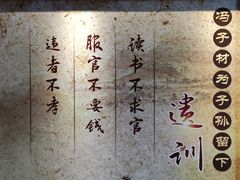 冯子材为子孙留下
遗训
读书不求官
服官不要钱
违者不孝